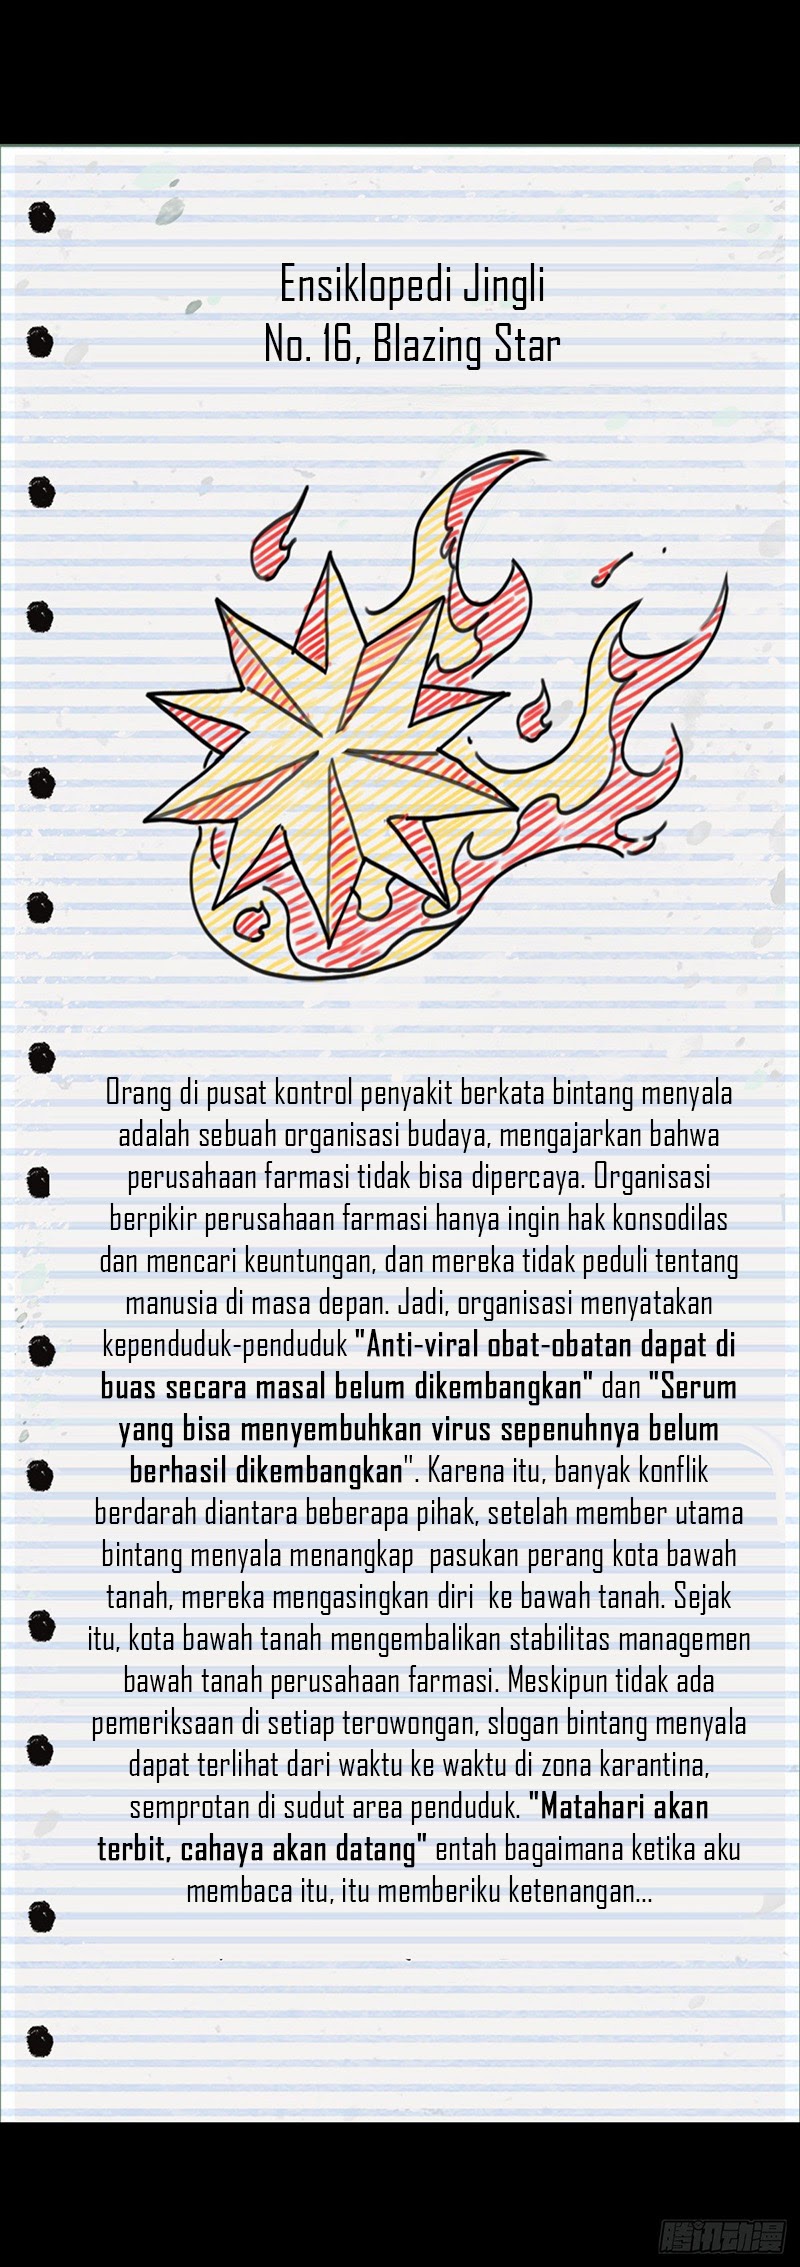 Ensiklopedi Jingli
No. 16, Blazing Star
Orang di pusat kontrol penyakit berkata bintang menyala
adalah sebuah organisasi budaya, mengajarkan bahwa
perusahaan farmasi tidak bisa dipercaya. Organisasi
berpikir perusahaan farmasi hanya ingin hak konsodilas
dan mencari keuntungan, dan mereka tidak peduli tentang
manusia di masa depan. Jadi, organisasi menyatakan
kependuduk-penduduk "Anti-viral obat-obatan dapat di
buas secara masal belum dikembangkan" dan "Serum
yang bisa menyembuhkan virus sepenuhnya belum
berhasil dikembangkan". Karena itu, banyak konflik
berdarah diantara beberapa pihak, setelah member utama
bintang menyala menangkap pasukan perang kota bawah
tanah, mereka mengasingkan diri ke bawah tanah. Sejak
itu, kota bawah tanah mengembalikan stabilitas managemen
bawah tanah perusahaan farmasi. Meskipun tidak ada
pemeriksaan di setiap terowongan, slogan bintang menyala
dapat terlihat dari waktu ke waktu di zona karantina,
semprotan di sudut area penduduk. "Matahari akan
terbit, cahaya akan datang" entah bagaimana ketika aku
membaca itu, itu memberiku ketenangan...
腾讯动漫